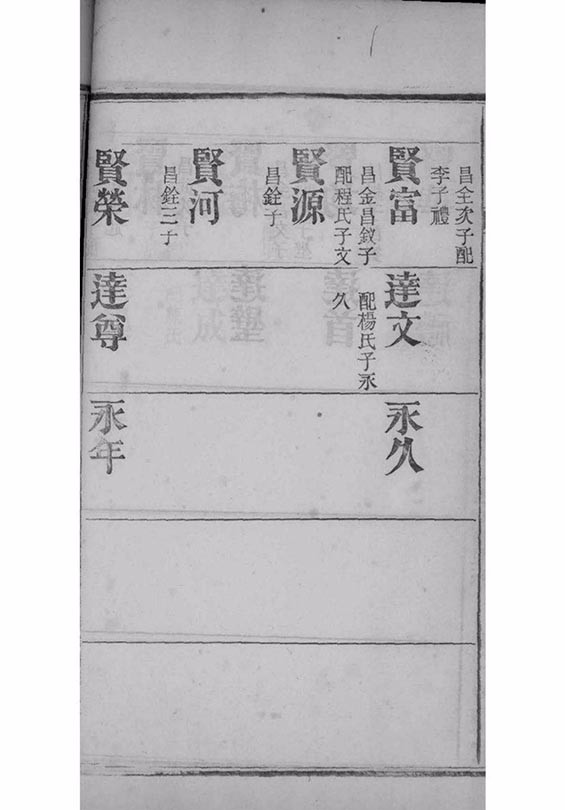 昌全次子配
李子禮
賢富
昌金昌釵子
配程氏子文
賢源
昌銓子
賢河
昌銓三子
賢榮
達文
配楊氏子永
久
達尊
永久
永年